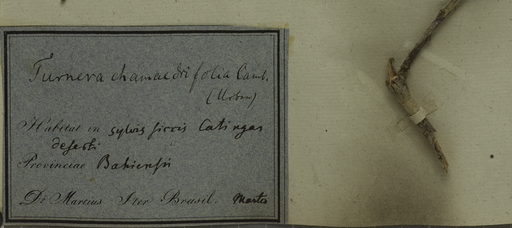 Turnera chamaedrifolia Camb.
(Urban)
Habitat in sylvis siccis Catingas
deserti
Provinciae Bahiensis
Dr Martius Iter Brasil. Martio